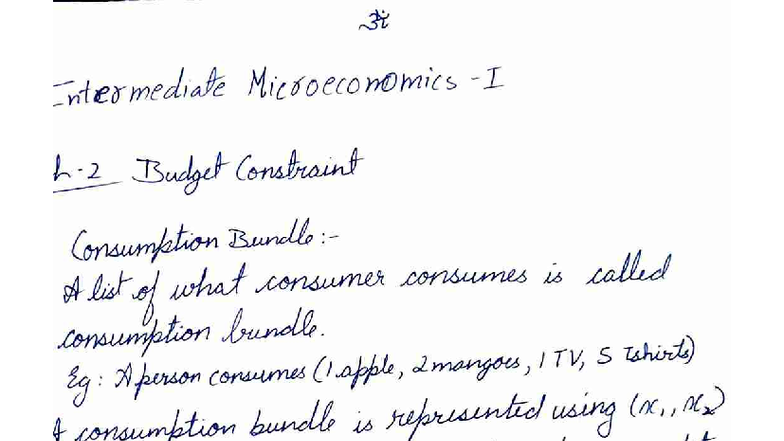 ૐ
Intermediate Microeconomics - I
h-2 Budget Constraint
Consumption Bundle:-
A list of what consumer consumes is called
consumption bundle.
Eg: A person consumes (1 apple, 2 mangoes, 1 TV, 5 Tshirts)
A consumption bundle is represented using (x₁, x₂)